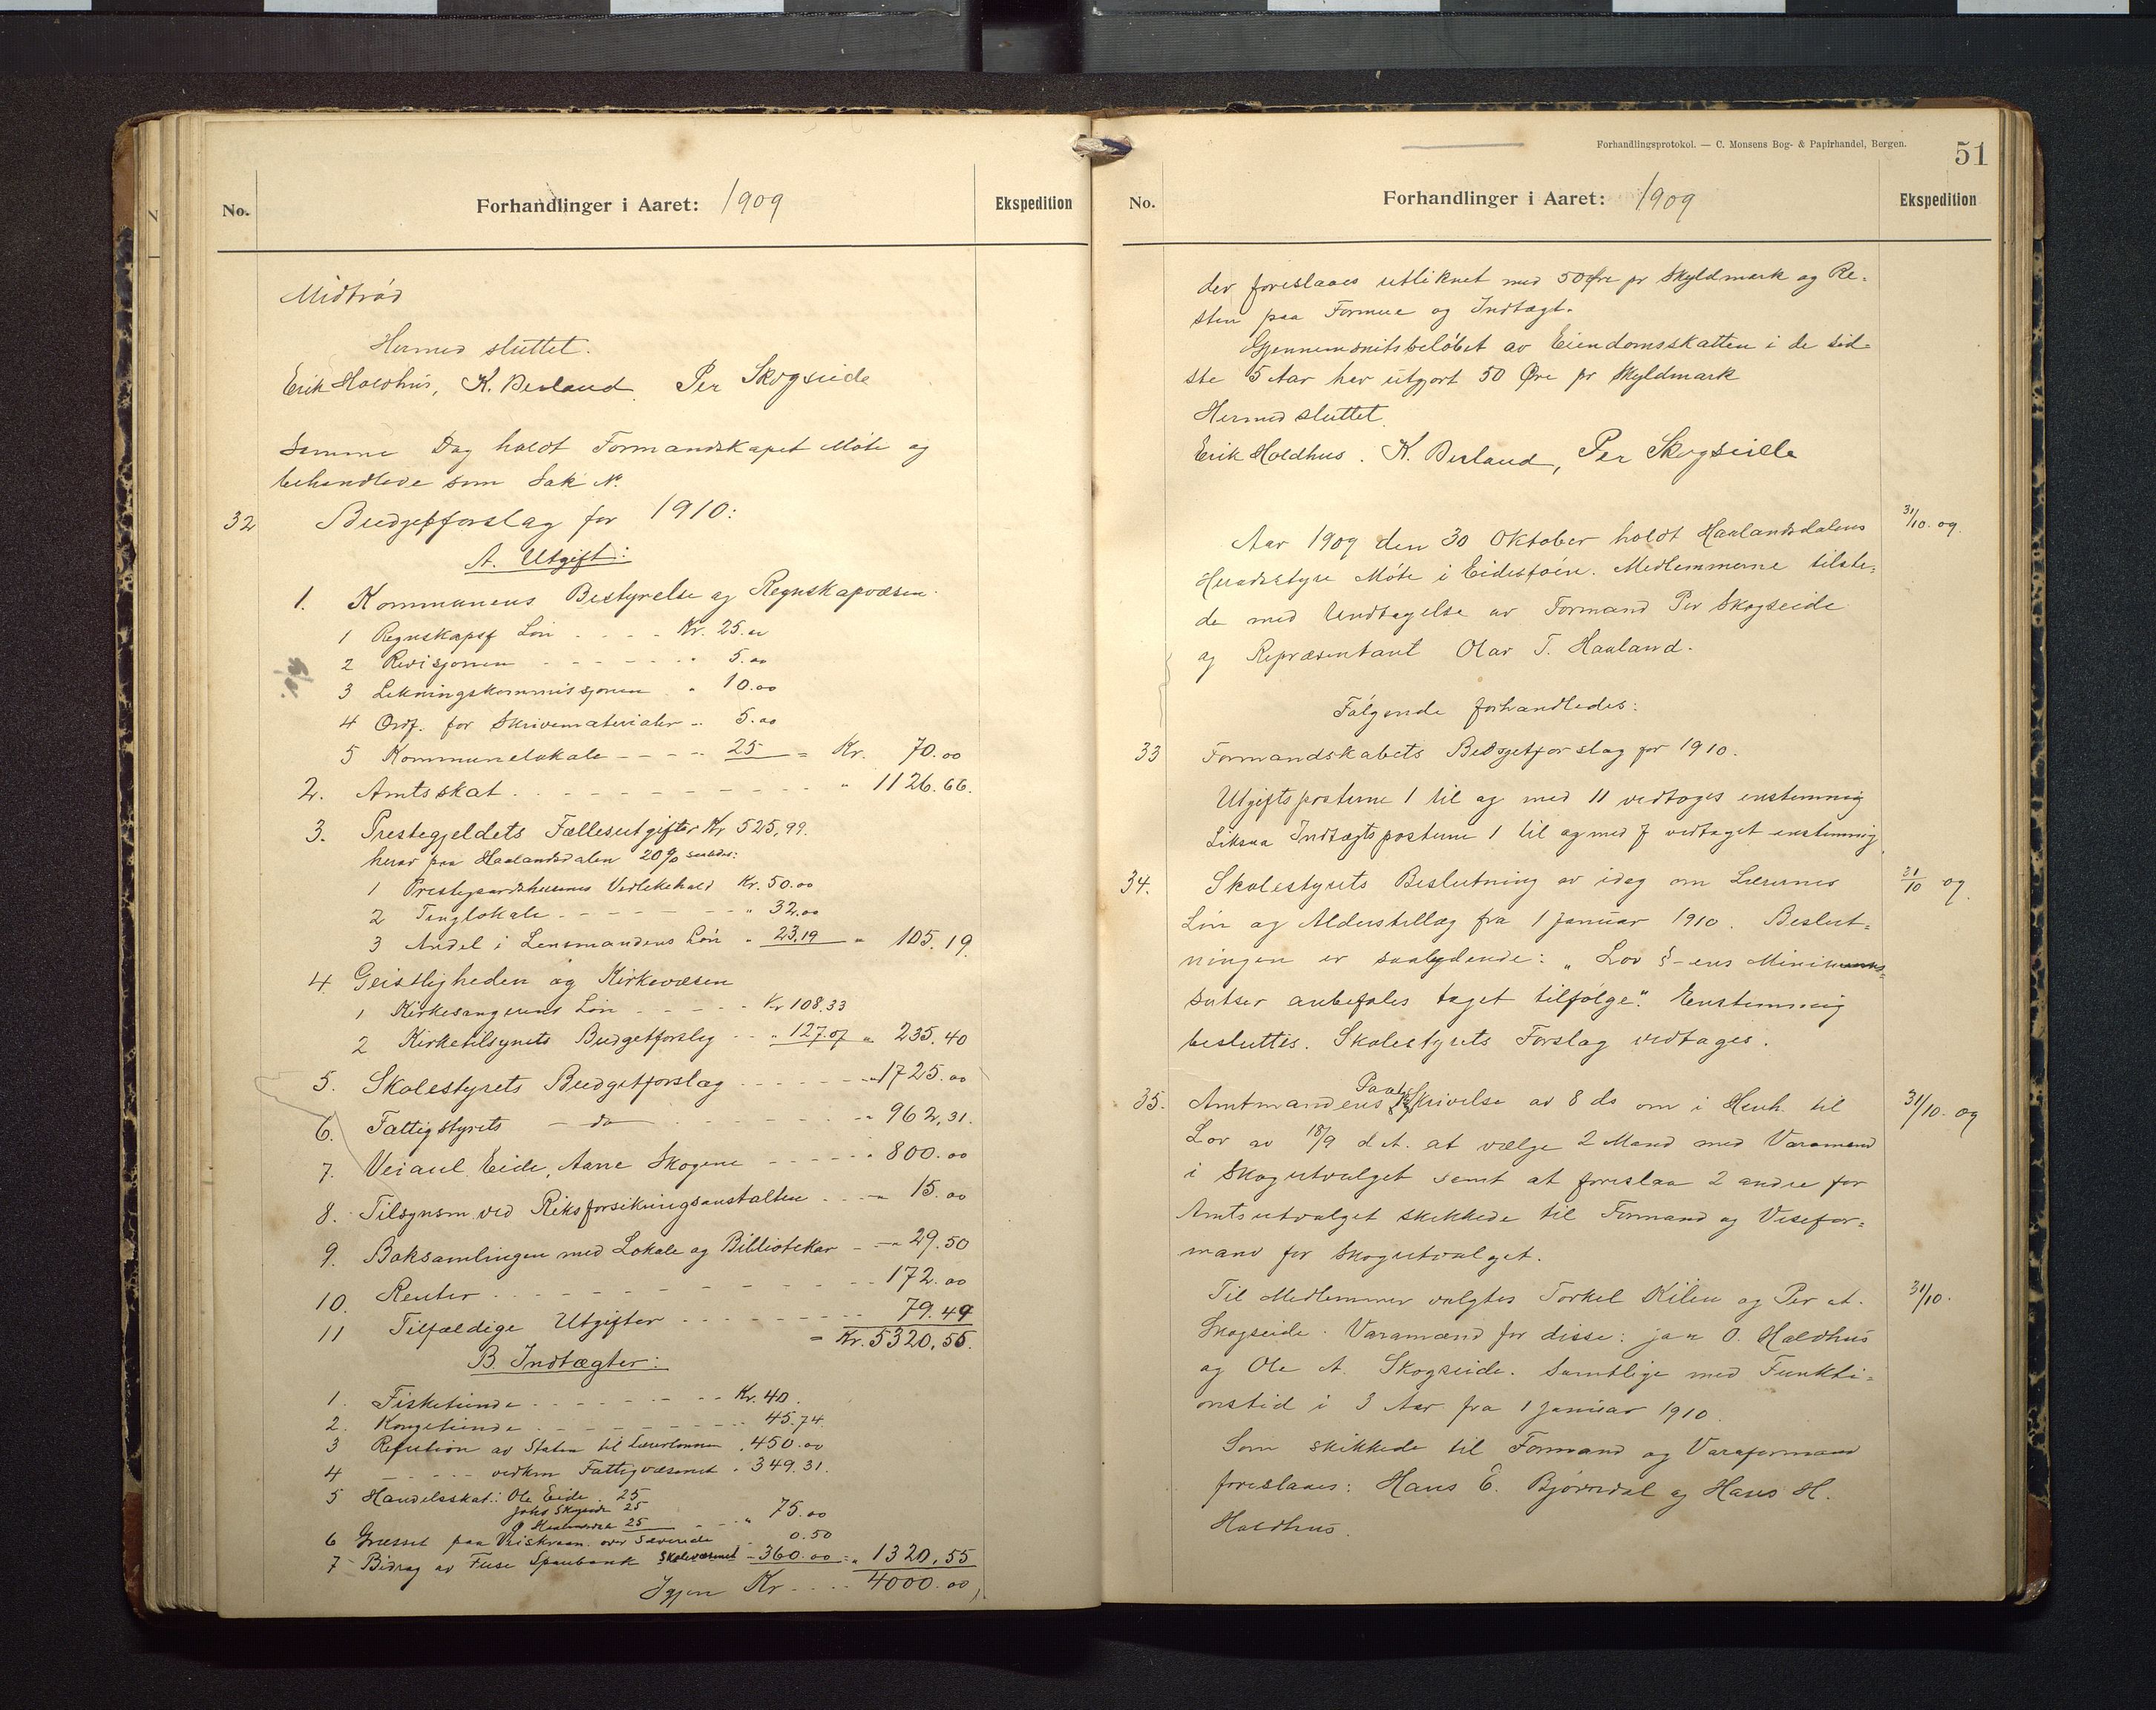 No. Forhandlinger i Aaret: 1909 Ekspedition
Midtrød
Hermed sluttet.
Erik Holdhus, K. Berland. Per Skogseide
Samme Dag holdt Formandskapet Møte og
behandlede som Sak No.
32 Budgetforslag for 1910:
A. Utgift:
1. Kommunens Bestyrelse og Regnskapvæsen.
1 Regnskapsf Løn - - - - Kr. 25.00
2 Revisjonen - - - - - - - " 5.00
3 Lekningskommissjonen " 10.00
4 Ordf. for Skrivematerialer " 5.00
5 Kommunelokale - - - - " 25 = Kr. 70.00
2. Amtsskat - - - - - - - - - - - " 1126.66.
3. Prestegjeldets Fællesutgifter Kr 525,99.
herav paa Haalandsdalen 20% saaledes:
1 Prestegaardshusenes Vedlikehold Kr. 50.00
2 Tinglokale - - - - - - - " 32.00
3 Andel i Lensmandens Løn " 23,19 " 105.19.
4 Geistligheden og Kirkevæsen
1 Kirkesangerens Løn - - - - - Kr 108.33
2 Kirketilsynets Budgetforslag - - " 127.07 " 235.40
5. Skolestyrets Budgetforslag - - - - - - - " 1725.00
6. Fattigstyrets - do - - - - - - - - " 962,31.
7. Veianl. Eide, Aarre Skogene - - - - - - " 800.00
8. Tilsynsm. ved Riksforsikringsanstalten - - - " 15.00
9. Boksamlingen med Lokale og Bibliotekar - - " 29.50
10. Renter - - - - - - - - - - - - 172.00
11 Tilfældige Utgifter - - - - - - - - 79.49
= Kr. 5320,55.
B. Indtægter:
1. Fisketiende - - - - - - - - Kr. 40.
2. Kongetiende - - - - - - - - 45.74.
3 Refution av Staten til Lærerlønnen " 450.00
4 - - - - - vedkm Fattigvæsenet " 349.31.
5 Handelsskat: Ole Eide 25
Johs Skogseide 25
25 - - " 75.00
6 Græsset paa 0.50
7 Bidrag av Fuse Sparebank Skolevæsenet - 360.00 = " 1320,55
Igjen Kr - - - - 4000.00
Forhandlingsprotokol. — C. Monsens Bog- & Papirhandel, Bergen. 51
No. Forhandlinger i Aaret: 1909 Ekspedition
der foreslaaes utliknet med 50 Øre pr Skyldmark og Re-
sten paa Formue og Indtægt.
Gjennemsnitsbeløbet av Eiendomsskatten i de sid-
ste 5 Aar har utgjort 50 Øre pr Skyldmark
Hermed sluttet.
Erik Holdhus. K. Berland, Per Skogseide
Aar 1909 den 30 Oktober holdt Haalandsdalens 31/10. og.
Heradsstyre Møte i Eidestøen. Medlemmerne tilste-
de med Undtagelse av Formand Per Skogseide
og Repræsentant Olav T. Haaland.
Følgende forhandledes:
33 Formandskabets Budgetforslag for 1910.
Utgiftsposterne 1 til og med 11 vedtoges enstemmig
Liksaa Indtægtsposterne 1 til og med 7 vedtaget enstemmig.
34. Skolestyrets Beslutning av idag om Lærernes 31/10 og.
Løn og Alderstillæg fra 1 Januar 1910. Beslut-
ningen er saalydende: „Lov §-ens Minimums-
satser anbefales taget tilfølge." Enstemmig
besluttes. Skolestyrets Forslag vedtages.
35. Amtmandens Skrivelse av 8 ds om i Henh. til 31/10. og
Lov av 18/9 d.A. at vælge 2 Mand med Varamænd
i Skogutvalget samt at foreslaa 2 andre for
Amtsutvalget skikkede til Formand og Visefor-
mand for Skogutvalget.
Til Medlemmer valgtes Torkel Kilen og Per A. 31/10.
Skogseide. Varamænd for disse: Jan O. Holdhus
og Ole A. Skogseide. Samtlige med Funkti-
onstid i 3 Aar fra 1 Januar 1910.
Som skikkede til Formand og Varaformand
foreslaaes: Hans E. Bjørndal og Hans H.
Holdhus.